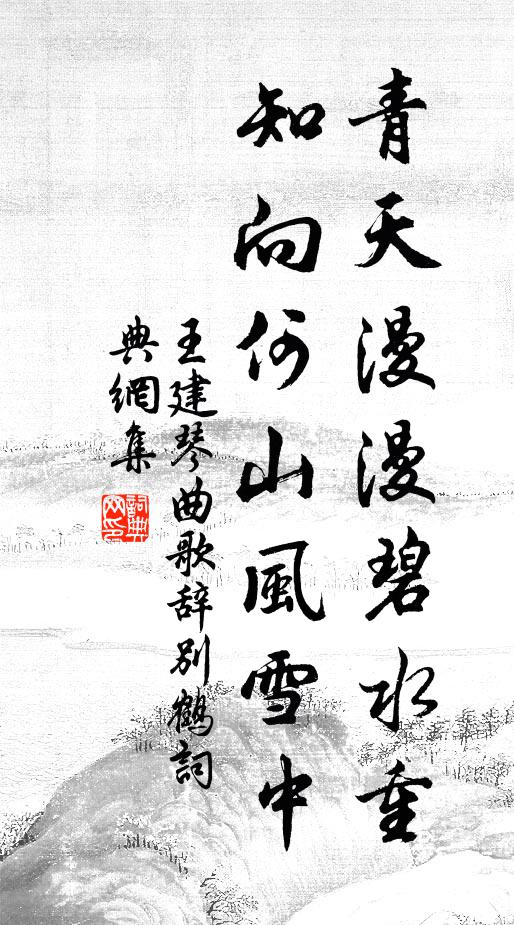 青天漫漫碧水重
知向何山風雪中
王建琴曲歌辞別鶴詞
典網集
詞典
网印